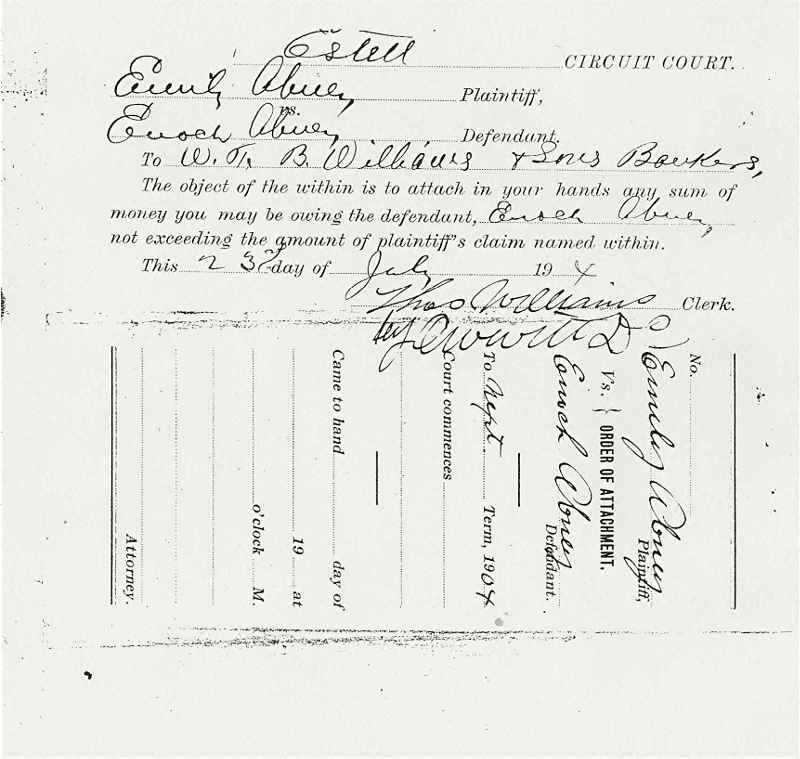 Estell CIRCUIT COURT.
Emily Abney Plaintiff,
vs.
Enoch Abney Defendant.
To W. T. B. Williams & Sons Bankers,
The object of the within is to attach in your hands any sum of
money you may be owing the defendant, Enoch Abney,
not exceeding the amount of plaintiff's claim named within.
This 23 day of July 19 4
Thos Williams Clerk.
by
No.
Emily Abney
Plaintiff,
Vs. } ORDER OF ATTACHMENT.
Enoch Abney
Defendant.
To Sept. Term, 1904
Court commences
Came to hand day of
19 at
o'clock M.
Attorney.